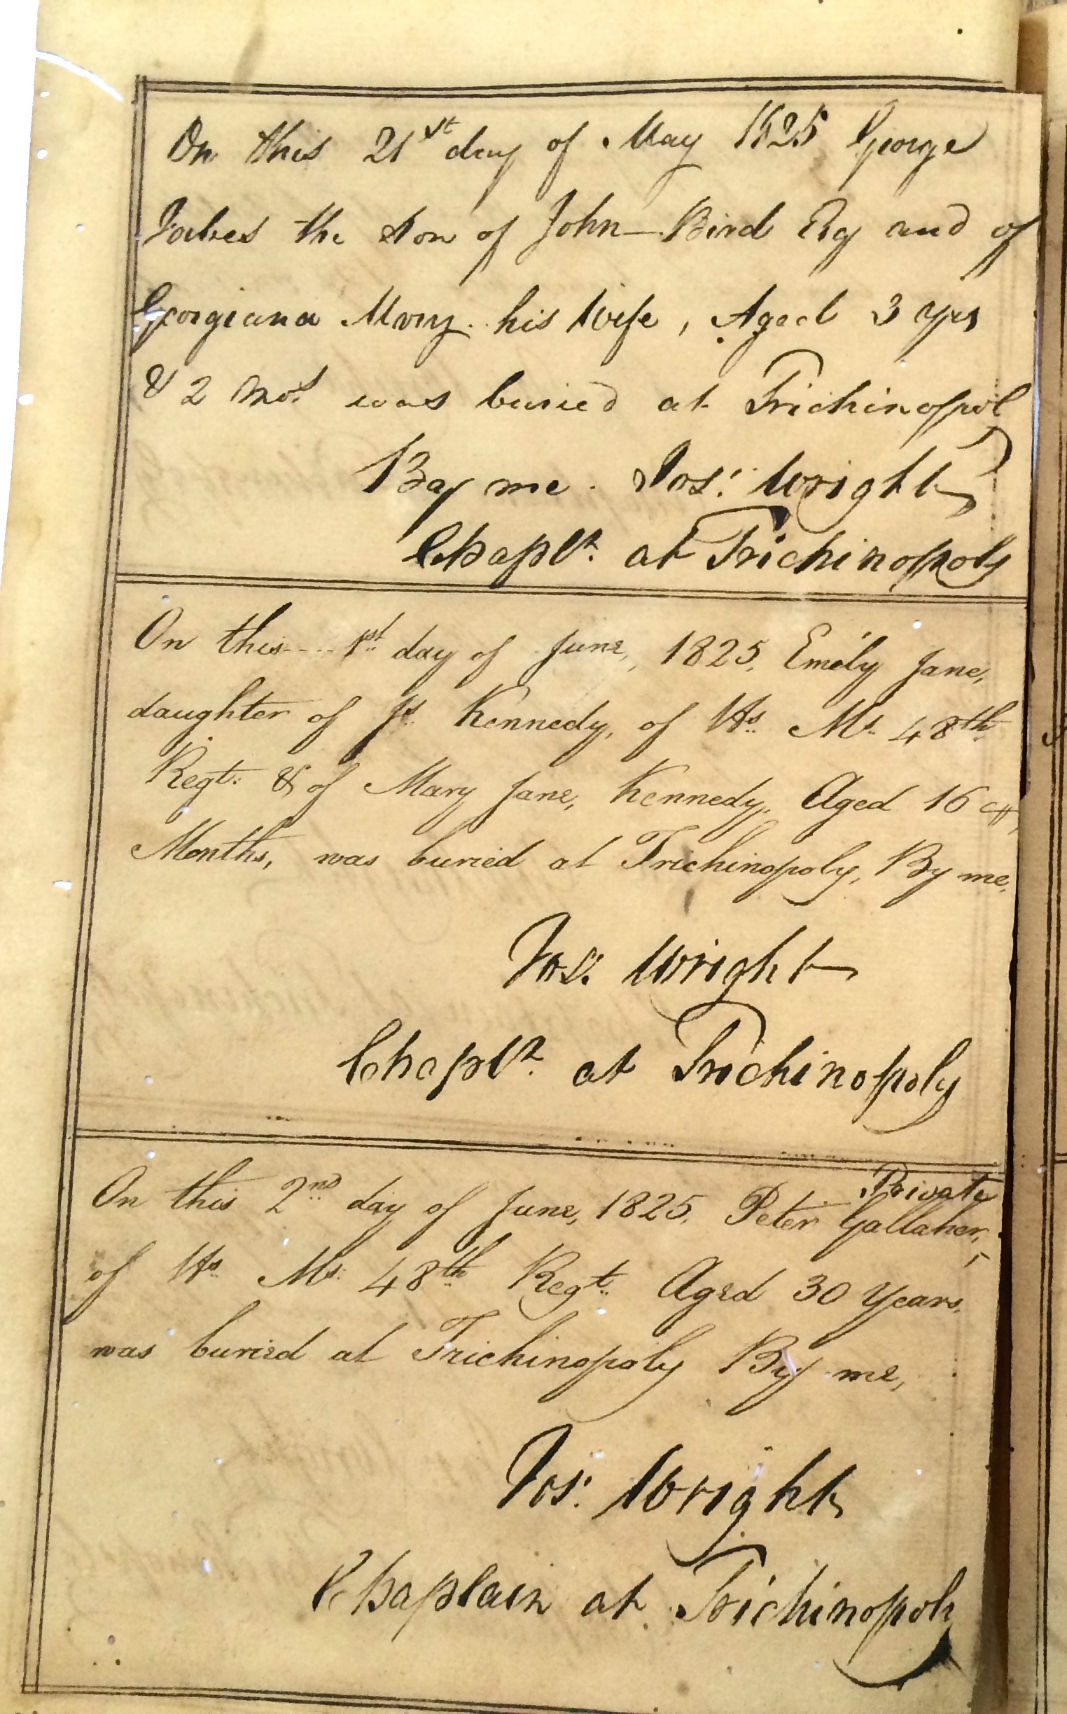 On this 21st day of May 1825 George
Forbes the Son of John Bird Esq and of
Georgiana Mary his Wife, Aged 3 Yrs
& 2 Mos. was buried at Trichinopoly
By me. Jos: Wright
Chapln. at Trichinopoly
On this 1st day of June, 1825, Emily Jane,
daughter of Js. Kennedy, of Hs. Ms. 48th
Regt: & of Mary Jane, Kennedy, Aged 16
Months, was buried at Trichinopoly, By me,
Jos. Wright
Chapln. at Trichinopoly
Private
On this 2nd day of June, 1825, Peter Gallaher,
of Hs. Ms. 48th Regt. Aged 30 Years,
was buried at Trichinopoly By me,
Jos: Wright
Chaplain at Trichinopoly